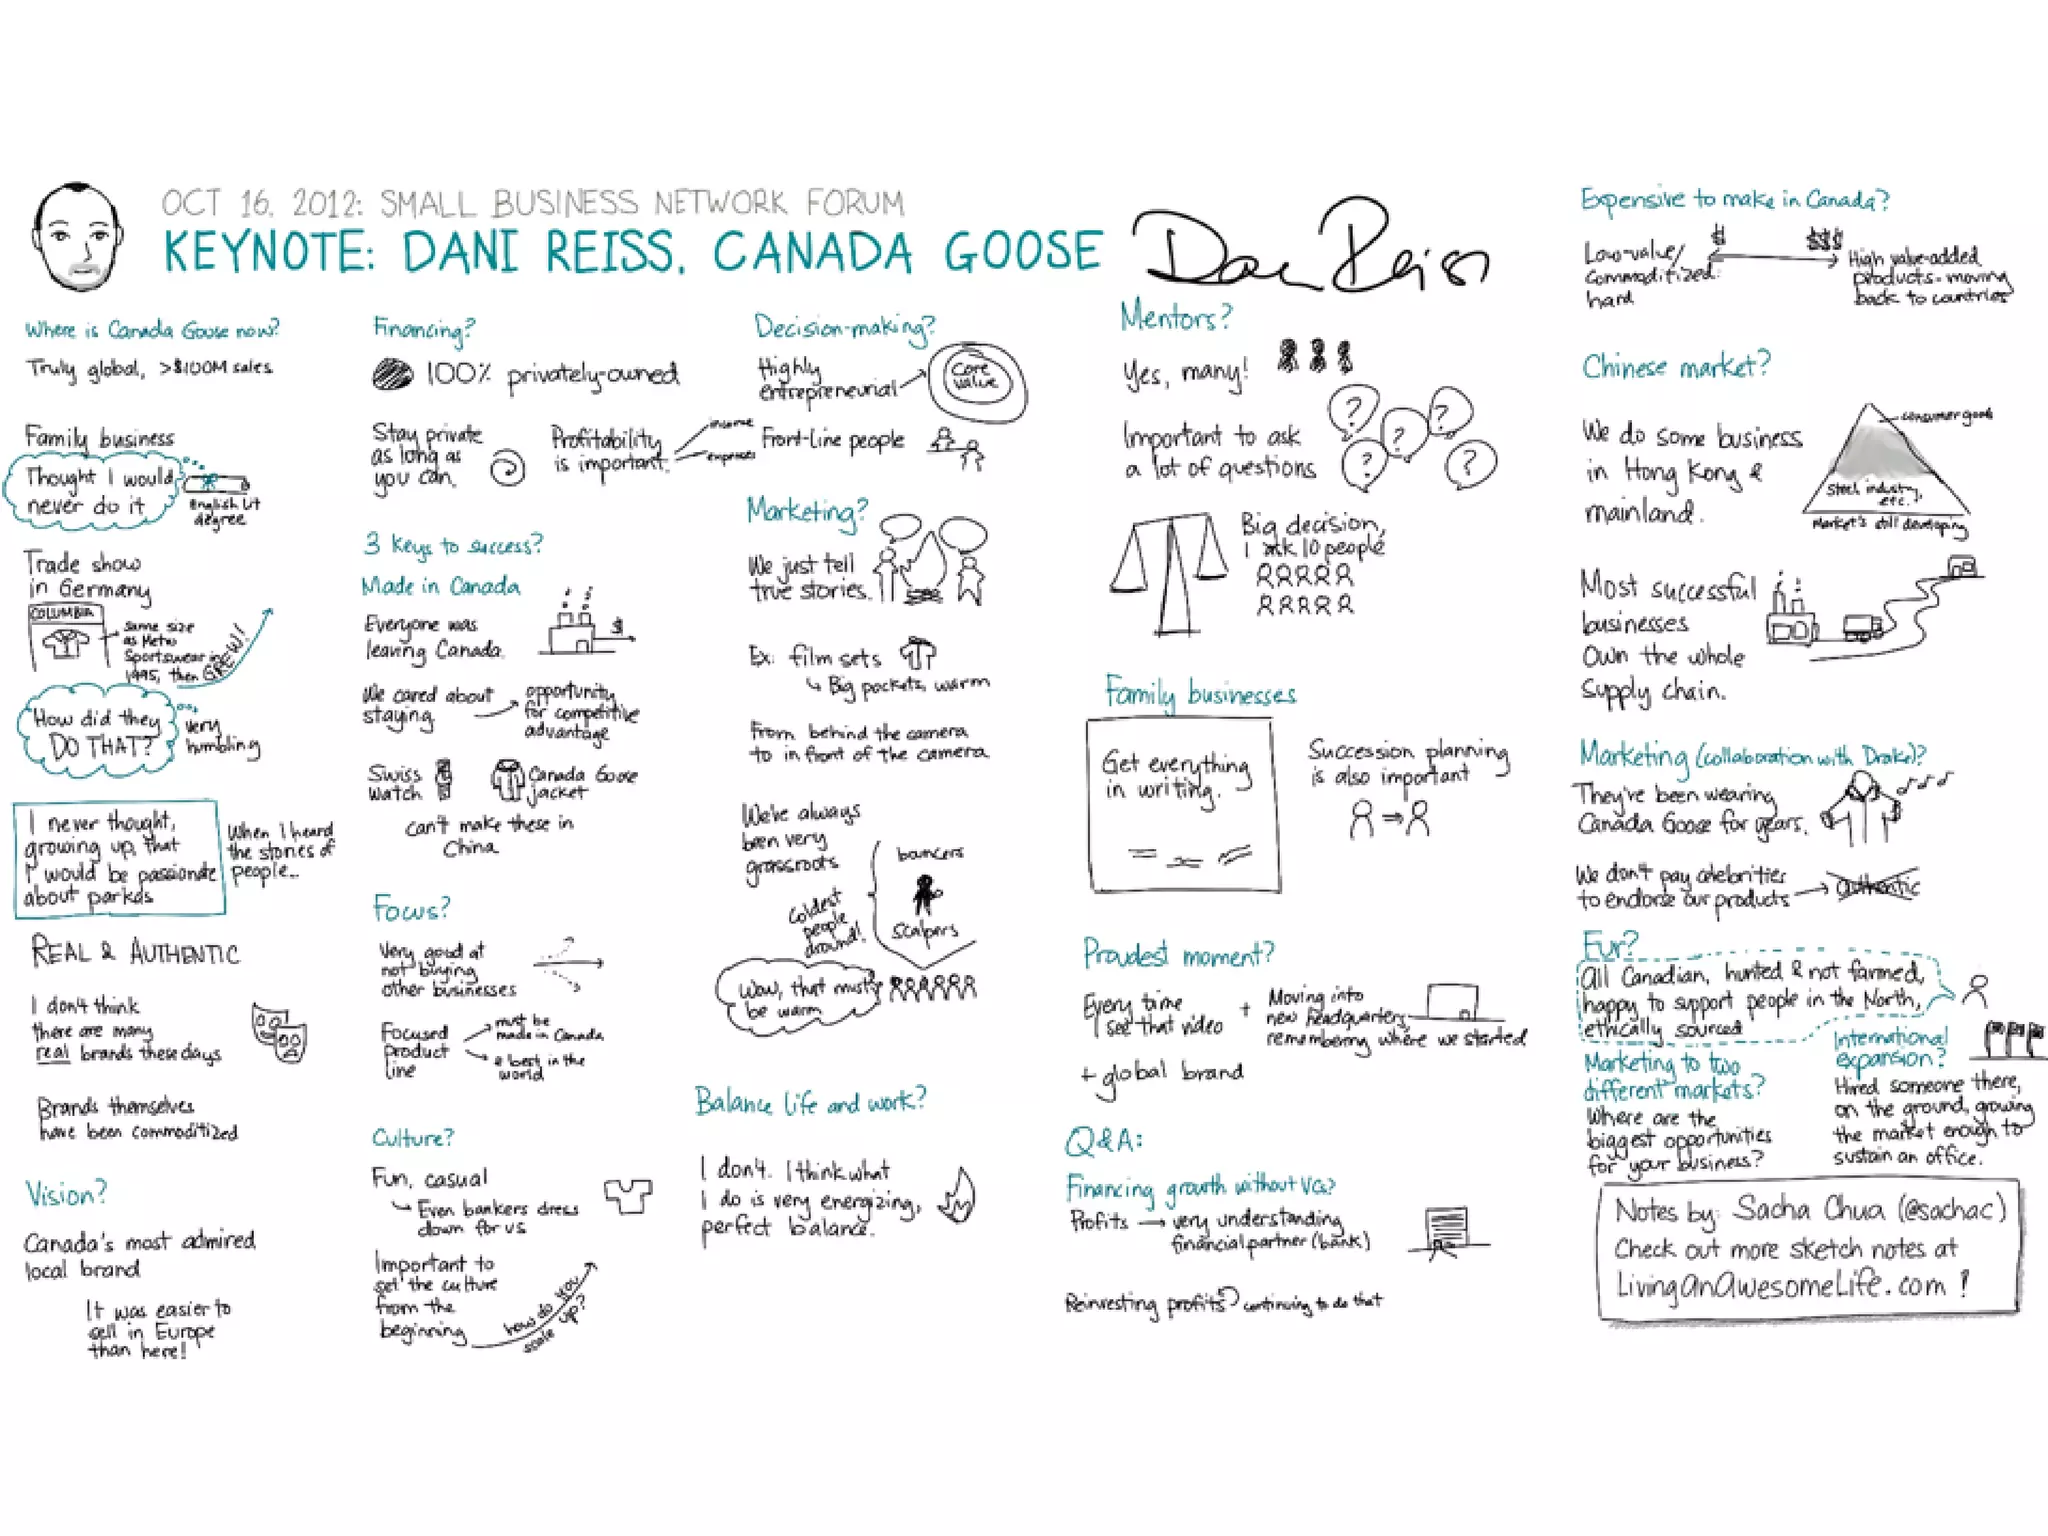 OCT 16, 2012: SMALL BUSINESS NETWORK FORUM
KEYNOTE: DANI REISS, CANADA GOOSE
Where is Canada Goose now?
Truly global, >$100M sales
Family business
Thought I would
never do it
English Lit
degree
Trade show
in Germany
COLUMBIA
same size
as Metro
Sportswear in
1995, then GREW!
How did they
DO THAT?
very
humbling
I never thought,
growing up, that
I would be passionate
about parkas
When I heard
the stories of
people...
REAL & AUTHENTIC
I don't think
there are many
real brands these days
Brands themselves
have been commoditized
Vision?
Canada's most admired
local brand
It was easier to
sell in Europe
than here!
Financing?
100% privately-owned
Stay private
as long as
you can.
Profitability
is important.
income
expenses
3 keys to success?
Made in Canada
Everyone was
leaving Canada.
$
We cared about
staying
opportunity
for competitive
advantage
Swiss
watch
Canada Goose
jacket
can't make these in
China
Focus?
Very good at
not buying
other businesses
Focused
product
line
must be
made in Canada
best in the
world
Culture?
Fun, casual
Even bankers dress
down for us
Important to
set the culture
from the
beginning
how do you
scale up?
Decision-making?
Highly
entrepreneurial
Core
value
Front-line people
Marketing?
We just tell
true stories.
Ex: film sets
Big pockets, warm
From behind the camera
to in front of the camera
We've always
been very
grassroots
bouncers
scalpers
Coldest
people
around!
Wow, that must
be warm
Balance life and work?
I don't. I think what
I do is very energizing,
perfect balance.
Dani Reiss
Mentors?
Yes, many!
Important to ask
a lot of questions
?
?
?
?
?
Big decision,
I ask 10 people
Family businesses
Get everything
in writing.
Succession planning
is also important
Proudest moment?
Every time
I see that video
+
Moving into
new headquarters,
remembering where we started
+ global brand
Q&A:
Financing growth without VCs?
Profits
very understanding
financial partner (bank)
Reinvesting profits
continuing to do that
Expensive to make in Canada?
Low-value/
commoditized:
hard
$
$$$
High value-added
products - moving
back to countries
Chinese market?
We do some business
in Hong Kong &
mainland.
consumer goods
Steel industry,
etc.
Market's still developing
Most successful
businesses
own the whole
supply chain.
Marketing (collaboration with Drake)?
They've been wearing
Canada Goose for years.
We don't pay celebrities
to endorse our products
authentic
Fur?
All Canadian, hunted & not farmed,
happy to support people in the North,
ethically sourced
Marketing to two
different markets?
Where are the
biggest opportunities
for your business?
International
expansion?
Hired someone there,
on the ground, growing
the market enough to
sustain an office.
Notes by: Sacha Chua (@sachac)
Check out more sketch notes at
LivingAnAwesomeLife.com!